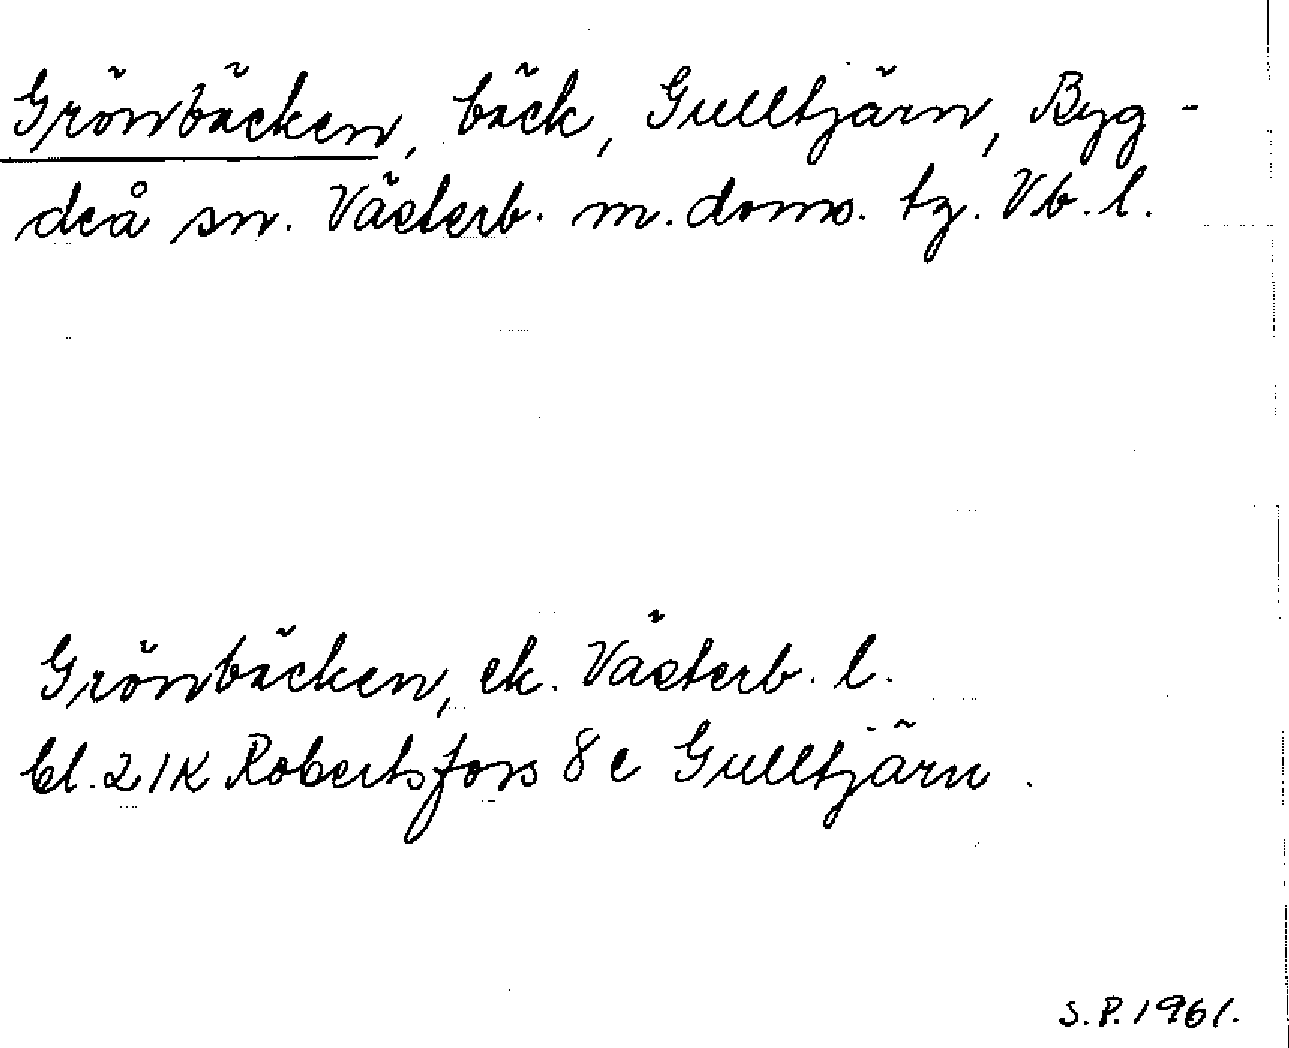 Grönbäcken, bäck, Gulltjärn, Byg-
deå sn. Västerb. m. doms. tg. Vb. l.
Grönbäcken, ek. Västerb. l.
bl. 21K Robertsfors 8 e Gulltjärn.
S.P. 1961.